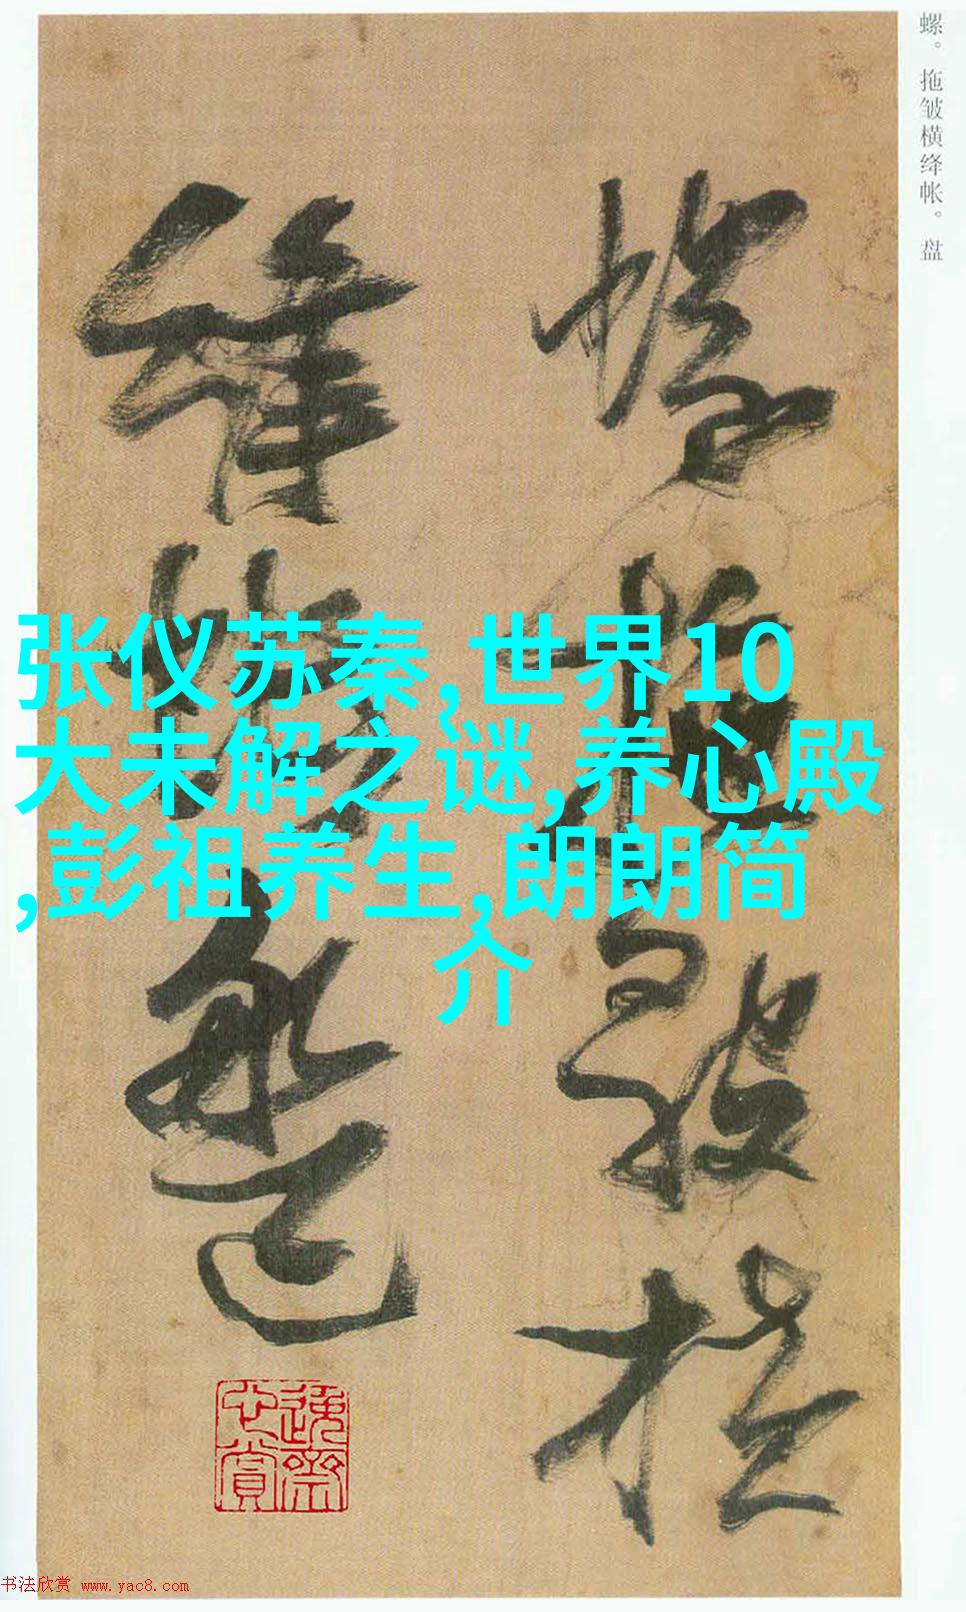 螺。拖皱横绛帐。盘
螺拖皱横
绛帐盘
张仪苏秦,世界10
大未解之谜,养心殿
,彭祖养生,朗朗简
介
书法欣赏 www.yac8.com